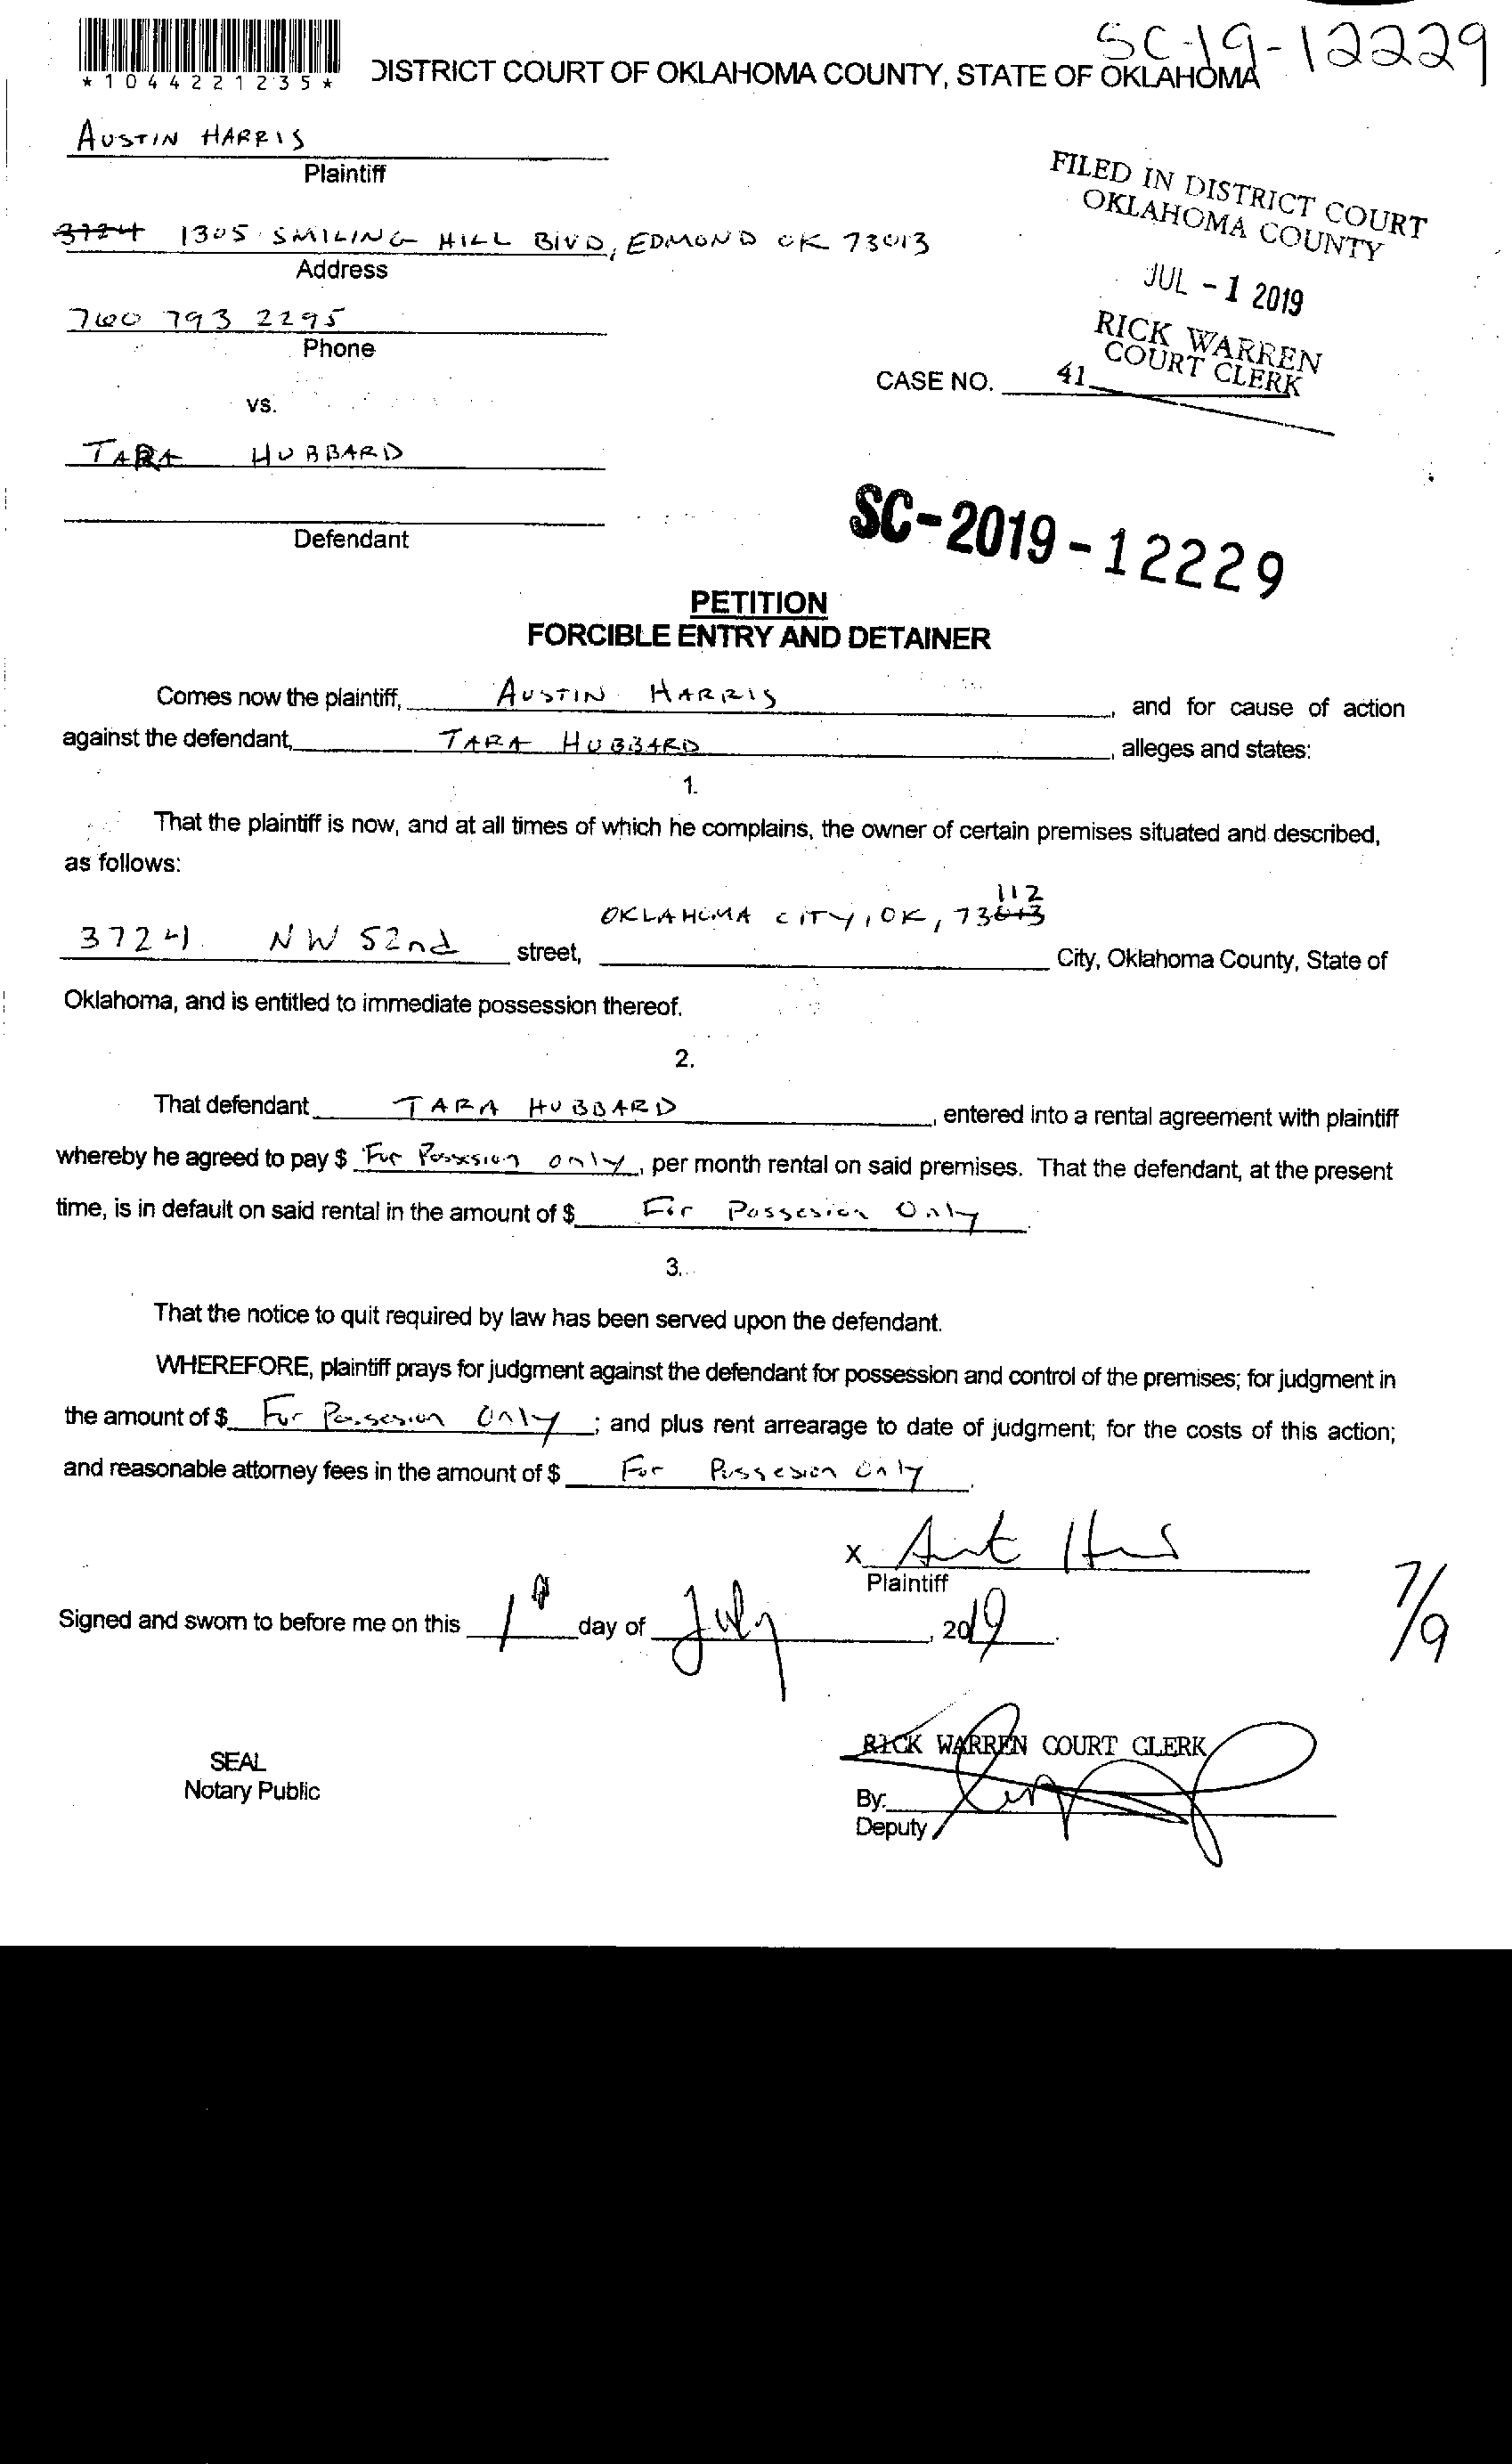 SC-19-12229
*1044221235*
DISTRICT COURT OF OKLAHOMA COUNTY, STATE OF OKLAHOMA
AUSTIN HARRIS
Plaintiff
FILED IN DISTRICT COURT
OKLAHOMA COUNTY
3724 1305 SMILING HILL BLVD, EDMOND OK 73013
Address
JUL - 1 2019
760 793 2295
Phone
RICK WARREN
COURT CLERK
CASE NO. 41
vs.
TARA HUBBARD
Defendant
SC-2019-12229
PETITION
FORCIBLE ENTRY AND DETAINER
Comes now the plaintiff, AUSTIN HARRIS, and for cause of action
against the defendant, TARA HUBBARD, alleges and states:
1.
That the plaintiff is now, and at all times of which he complains, the owner of certain premises situated and described,
as follows:
112
OKLAHOMA CITY, OK, 73013
3724 NW 52nd street, City, Oklahoma County, State of
Oklahoma, and is entitled to immediate possession thereof.
2.
That defendant TARA HUBBARD, entered into a rental agreement with plaintiff
whereby he agreed to pay $ For Possesion only, per month rental on said premises. That the defendant, at the present
time, is in default on said rental in the amount of $ For Possesion Only.
3.
That the notice to quit required by law has been served upon the defendant.
WHEREFORE, plaintiff prays for judgment against the defendant for possession and control of the premises; for judgment in
the amount of $ For Possesion Only; and plus rent arrearage to date of judgment; for the costs of this action;
and reasonable attorney fees in the amount of $ For Possesion Only.
X
Plaintiff
Signed and sworn to before me on this 1st day of July, 2019.
7/9
RICK WARREN COURT CLERK
SEAL
Notary Public
By:
Deputy